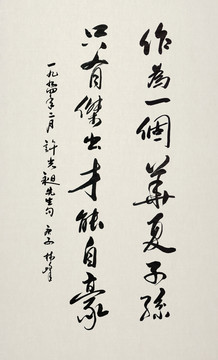 作為一個華夏子孫
只有傑出才能自豪
一九九四年二月許光昭先生句